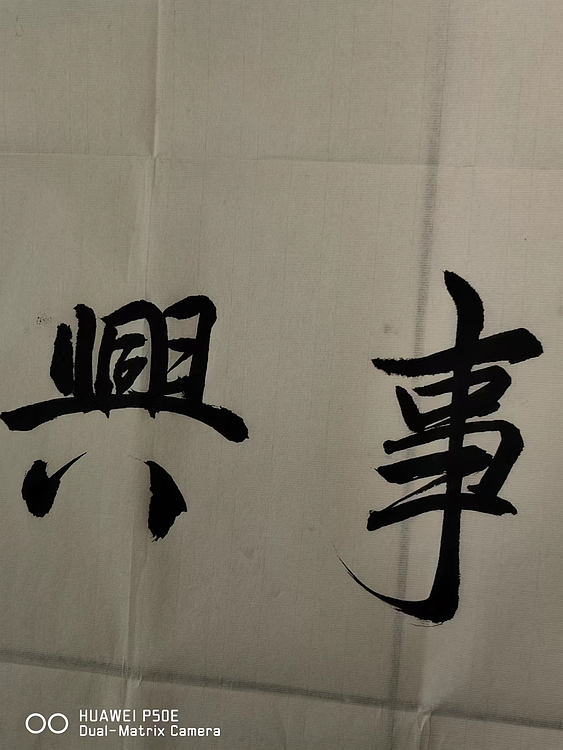 興事
HUAWEI P50E
Dual-Matrix Camera